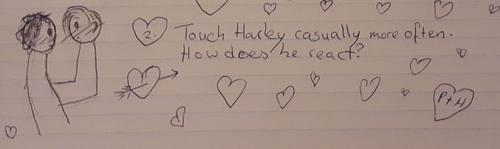 2. Touch Harley casually more often.
How does he react?
P+H